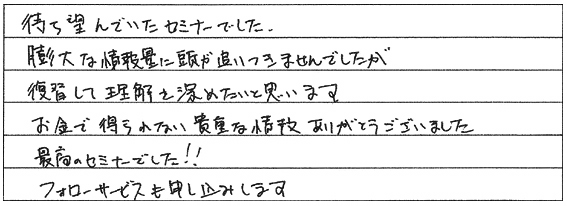 待ち望んでいたセミナーでした.
膨大な情報量に頭が追いつきませんでしたが
復習して理解を深めたいと思います
お金で得られない貴重な情報 ありがとうございました
最高のセミナーでした!!
フォローサービスも申し込みします